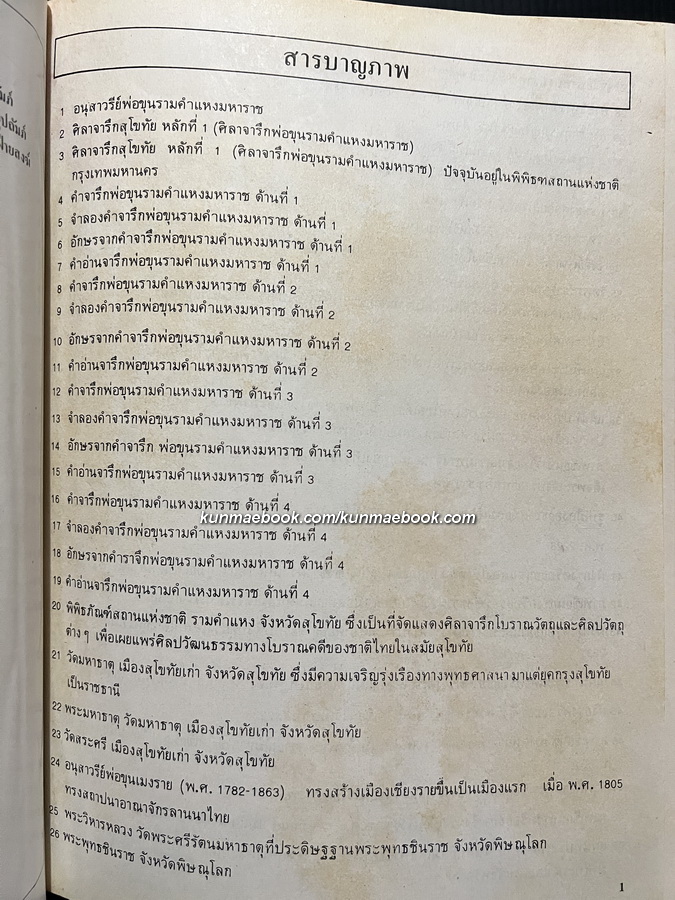 สารบาญภาพ
1 อนุสาวรีย์พ่อขุนรามคำแหงมหาราช
2 ศิลาจารึกสุโขทัย หลักที่ 1 (ศิลาจารึกพ่อขุนรามคำแหงมหาราช)
3 ศิลาจารึกสุโขทัย หลักที่ 1 (ศิลาจารึกพ่อขุนรามคำแหงมหาราช) ปัจจุบันอยู่ในพิพิธฑสถานแห่งชาติ
กรุงเทพมหานคร
4 คำจารึกพ่อขุนรามคำแหงมหาราช ด้านที่ 1
5 จำลองคำจารึกพ่อขุนรามคำแหงมหาราช ด้านที่ 1
6 อักษรจากคำจารึกพ่อขุนรามคำแหงมหาราช ด้านที่ 1
7 คำอ่านจารึกพ่อขุนรามคำแหงมหาราช ด้านที่ 1
8 คำจารึกพ่อขุนรามคำแหงมหาราช ด้านที่ 2
9 จำลองคำจารึกพ่อขุนรามคำแหงมหาราช ด้านที่ 2
10 อักษรจากคำจารึกพ่อขุนรามคำแหงมหาราช ด้านที่ 2
11 คำอ่านจารึกพ่อขุนรามคำแหงมหาราช ด้านที่ 2
12 คำจารึกพ่อขุนรามคำแหงมหาราช ด้านที่ 3
13 จำลองคำจารึกพ่อขุนรามคำแหงมหาราช ด้านที่ 3
14 อักษรจากคำจารึก พ่อขุนรามคำแหงมหาราช ด้านที่ 3
15 คำอ่านจารึกพ่อขุนรามคำแหงมหาราช ด้านที่ 3
16 คำจารึกพ่อขุนรามคำแหงมหาราช ด้านที่ 4
kunmaebook.com/kunmaebook.com
17 จำลองคำจารึกพ่อขุนรามคำแหงมหาราช ด้านที่ 4
18 อักษรจากคำราจึกพ่อขุนรามคำแหงมหาราช ด้านที่ 4
19 คำอ่านจารึกพ่อขุนรามคำแหงมหาราช ด้านที่ 4
20 พิพิธภัณฑ์สถานแห่งชาติ รามคำแหง จังหวัดสุโขทัย ซึ่งเป็นที่จัดแสดงศิลาจารึกโบราณวัตถุและศิลปวัตถุ
ต่าง ๆ เพื่อเผยแพร่ศิลปวัฒนธรรมทางโบราณคดีของชาติไทยในสมัยสุโขทัย
21 วัดมหาธาตุ เมืองสุโขทัยเก่า จังหวัดสุโขทัย ซึ่งมีความเจริญรุ่งเรืองทางพุทธศาสนา มาแต่ยุคกรุงสุโขทัย
เป็นราชธานี
22 พระมหาธาตุ วัดมหาธาตุ เมืองสุโขทัยเก่า จังหวัดสุโขทัย
23 วัดสระศรี เมืองสุโขทัยเก่า จังหวัดสุโขทัย
24 อนุสาวรีย์พ่อขุนเมงราย (พ.ศ. 1782-1863) ทรงสร้างเมืองเชียงรายขึ้นเป็นเมืองแรก เมื่อ พ.ศ. 1805
ทรงสถาปนาอาณาจักรลานนาไทย
25 พระวิหารหลวง วัดพระศรีรัตนมหาธาตุที่ประดิษฐฐานพระพุทธชินราช จังหวัดพิษณุโลก
26 พระพุทธชินราช จังหวัดพิษณุโลก
1